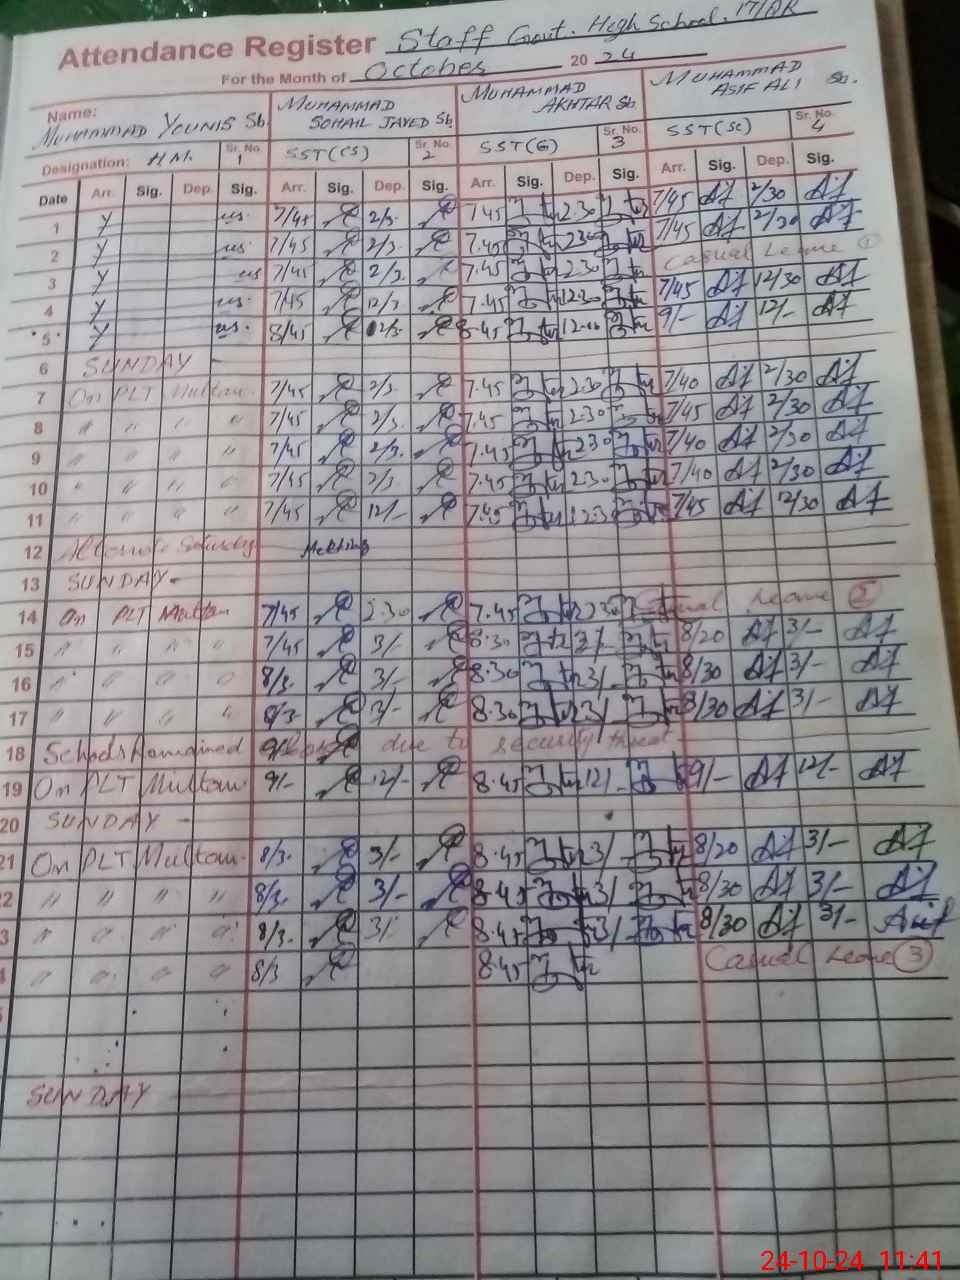 Attendance Register Staff Govt. High School. 17/AR
For the Month of October 20 24
Name: MUHAMMAD YOUNIS Sb. MUHAMMAD SOHAIL JAVED Sb. MUHAMMAD AKHTAR Sb MUHAMMAD ASIF ALI Sb.
Designation: H.M. Sr. No. 1 SST(CS) 2 SST(G) Sr. No. 3 SST(Sc) Sr. No. 4
Date Arr. Sig. Dep. Sig. Arr. Sig. Dep. Sig. Arr. Sig. Dep. Sig. Arr. Sig. Dep. Sig.
1 7/45 2/3. 7.45 2.30 7/45 2/30
2 7/45 2/3. 7.45 2.30 7/45 2/30
3 7/45 2/3. 7.45 2.30 Casual Leave 1
4 7/45 12/3 7.45 12.30 7/45 12/30
5 8/45 12/3. 8.45 12.00 9/- 12/-
6 SUNDAY -
7 On PLT Multan 7/45 2/3. 7.45 2.30 7/40 2/30
8 " " " " 7/45 2/3. 7.45 2.30 7/45 2/30
9 " " " " 7/45 2/3. 7.45 2.30 7/40 2/30
10 " " " " 7/45 2/3. 7.45 2.30 7/40 2/30
11 " " " " 7/45 12/- 7.45 12.30 7/45 12/30
12 Alternate Saturday Meeting
13 SUNDAY -
14 On PLT Multan 7/45 2.30 7.45 2.30 Casual Leave 2
15 " " " " 7/45 3/- 8.30 3/- 8/20 3/-
16 " " " " 8/3. 3/- 8.30 3/- 8/30 3/-
17 " " " " 8/3. 3/- 8.30 3/- 8/30 3/-
18 Schools Remained due to security threat
19 On PLT Multan. 9/- 12/- 8.45 12/- 9/- 12/-
20 SUNDAY -
21 On PLT Multan. 8/3. 3/- 8.45 3/- 8/20 3/-
22 " " " " 8/3. 3/- 8.45 3/- 8/30 3/-
3 " " " " 8/3. 3/- 8.45 3/- 8/30 3/- Asif
" " " " 8/3 8.45 Casual Leave 3
SUNDAY -
24-10-24 11:41